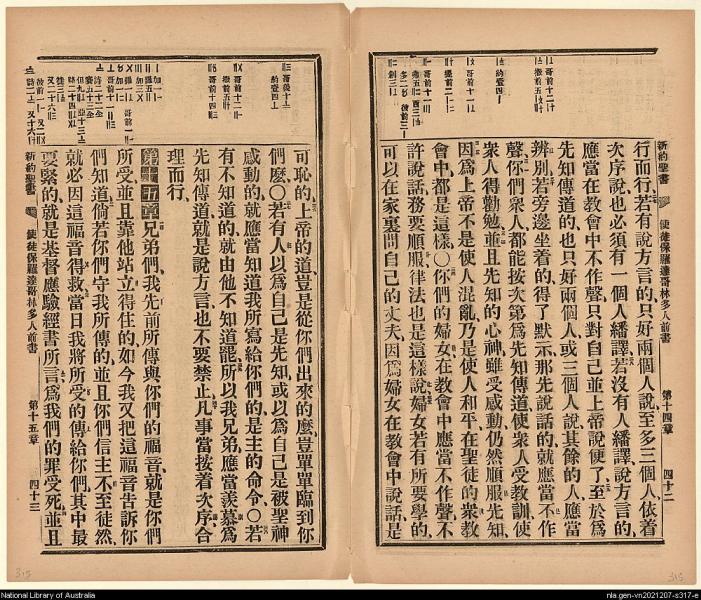 新約聖書 使徒保羅達哥林多人前書 第十四章 四十二
行而行、若有說方言的、只好兩個人說、至多三個人、依着
次序說、也必須有一個人繙譯、若沒有人繙譯、說方言的、
應當在教會中不作聲、只對自己並上帝說便了、至於爲
先知傳道的、也只好兩個人、或三個人說、其餘的人、應當
辨別、若旁邊坐着的、得了默示、那先說話的、就應當不作
聲、你們衆人、都能按次第爲先知傳道、使衆人受教訓、使
衆人得勸勉、並且先知的心神、雖受感動、仍然順服先知、
因爲上帝不是使人混亂、乃是使人和平、在聖徒的衆教
會中、都是這樣、〇你們的婦女、在教會中應當不作聲、不
許說話、務要順服、律法也是這樣說、婦女若有所要學的、
可以在家裏問自己的丈夫、因爲婦女在教會中說話、是
可恥的、上帝的道、豈是從你們出來的麼、豈單單臨到你
們麼、〇若有人以爲自己是先知、或以爲自己是被聖神
感動的、就應當知道我所寫給你們的、是主的命令、〇若
有不知道的、就由他不知道罷、所以我兄弟、應當羨慕爲
先知傳道、就是說方言、也不要禁止、凡事當按着次序合
理而行、
第十五章 兄弟們、我先前所傳與你們的福音、就是你們
所受、並且靠他站立得住的、如今我又把這福音告訴你
們知道、倘若你們守我所傳的、並且你們信主不至徒然、
就必因這福音得救、當日我將所受的傳給你們、其中最
要緊的、就是基督應驗經書所言、爲我們的罪受死、並且
新約聖書 使徒保羅達哥林多人前書 第十五章 四十三
315
315
National Library of Australia
nla.gen-vn2021207-s317-e